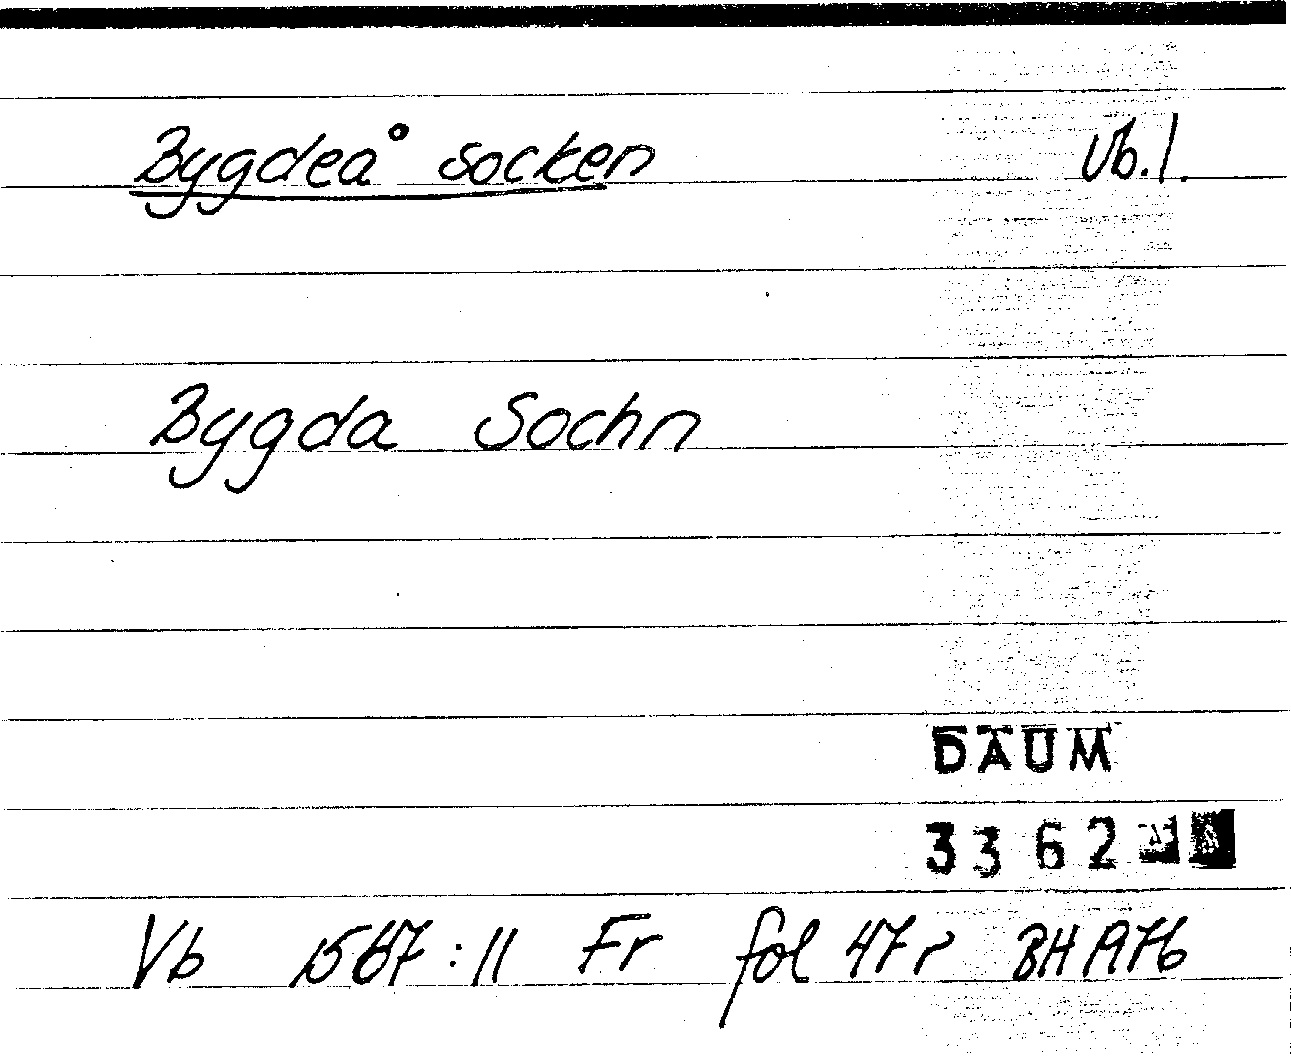 Bygdeå socken Vb. l.
Bygda Sochn
DAUM
3362
Vb 1567:11 Fr fol 47 r BH 1976